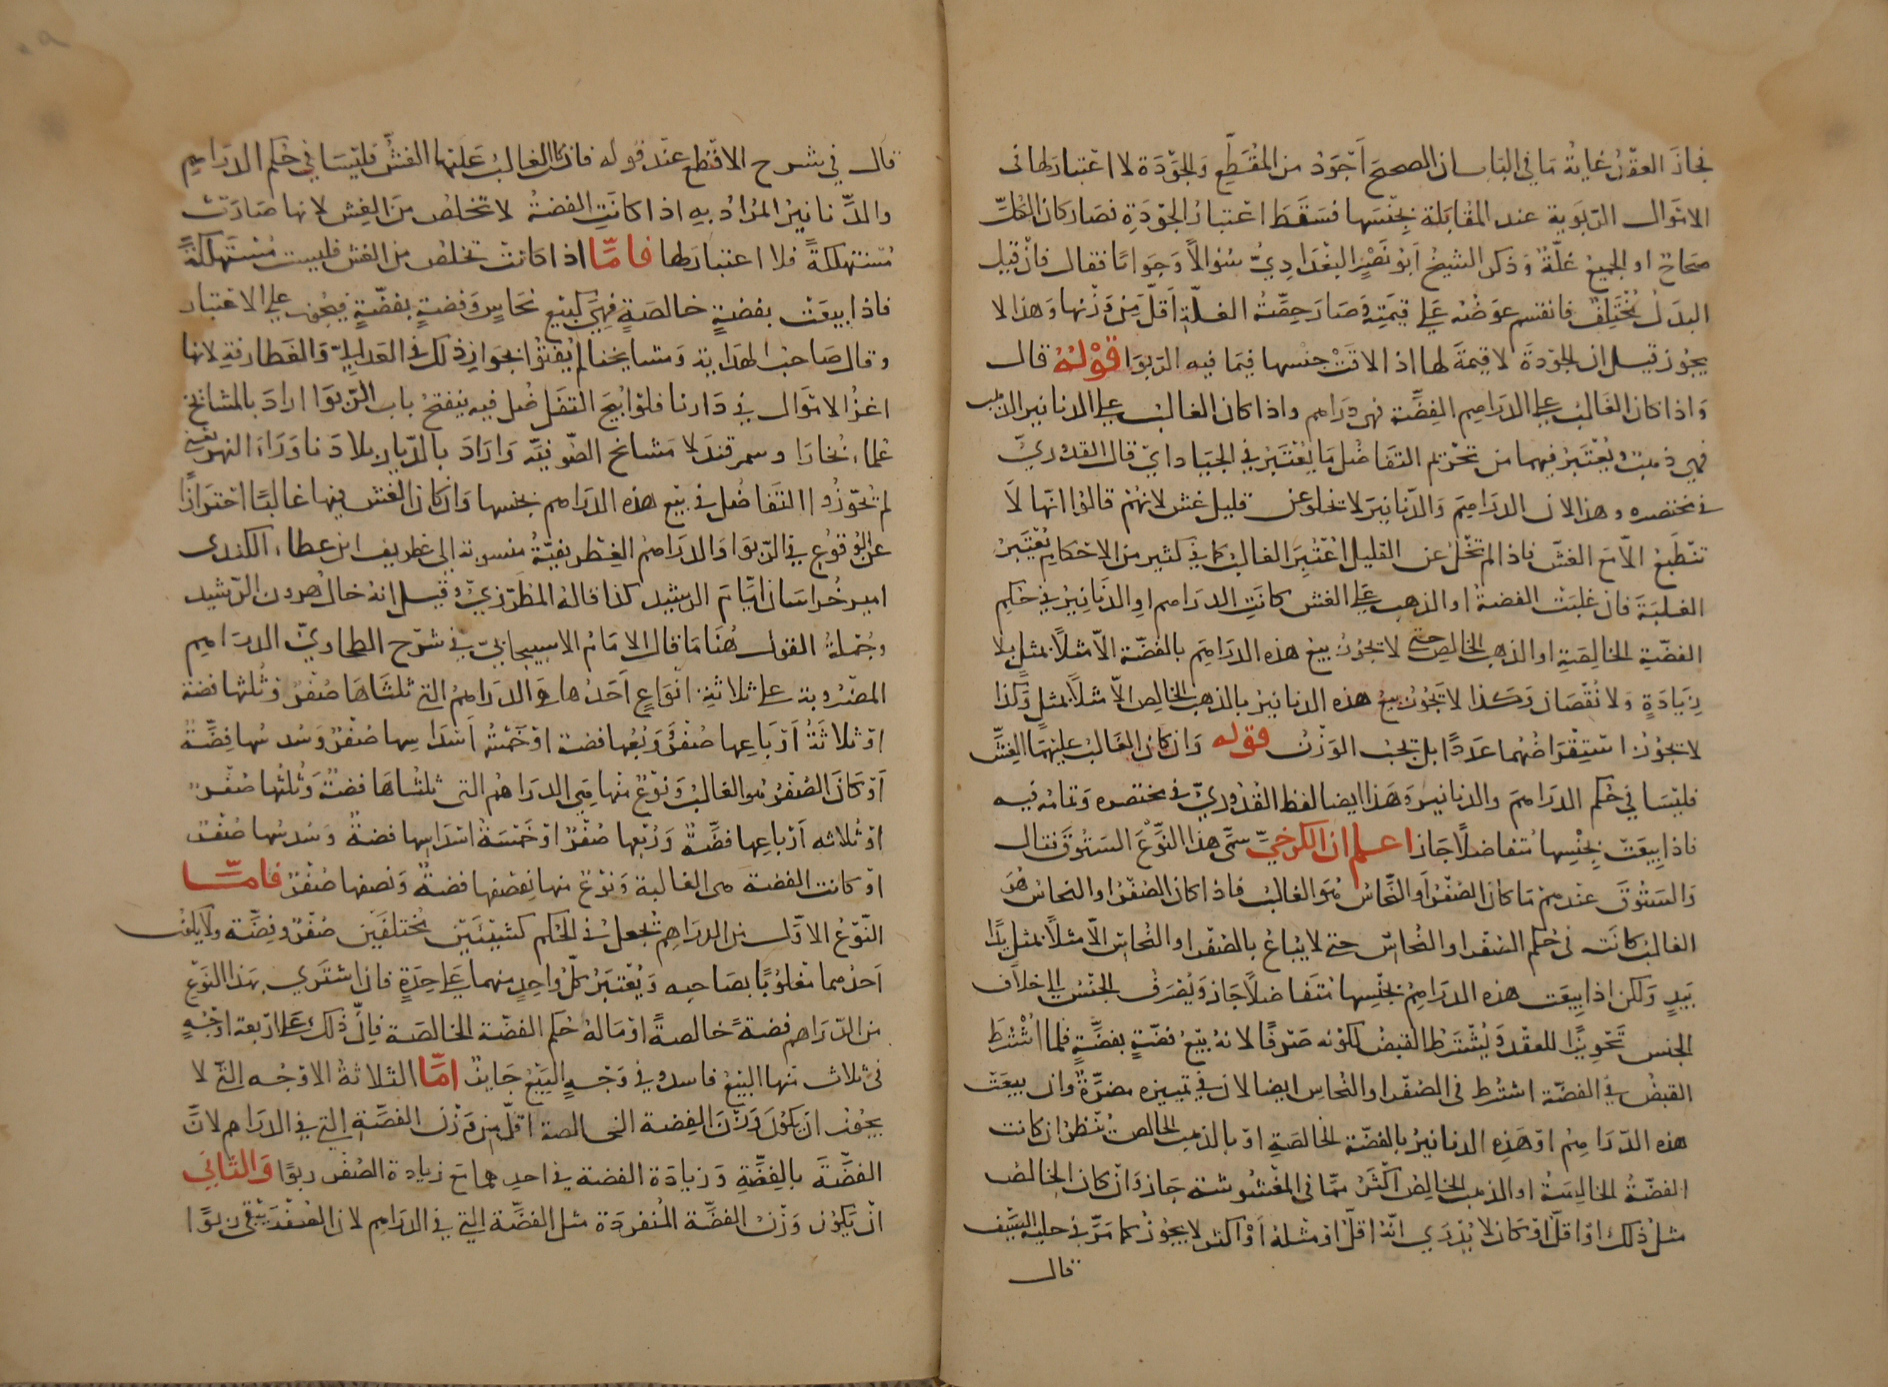 فجاز العقد غاية ما في الباب ان الصحيح أجود من المقطع والجودة لا اعتبار لها في
الاموال الربوية عند المقابلة بجنسها فسقط اعتبار الجودة فصار كان الكل
صحاح او الجميع غلة وذكر الشيخ أبو نصر البغدادي سؤالاً وجوابا فقال فان قيل
البدل مختلف فانقسم عوضه على قيمته وصار حصة الغلة أقل من وزنها وهذا لا
يجوز قيل ان الجودة لا قيمة لها اذا لاقت جنسها فيما فيه الربوا قوله قال
واذا كان الغالب على الدراهم الفضة فهي دراهم واذا كان الغالب على الدنانير الذهب
فهي ذهب يعتبر فيهما من تحريم التفاضل ما يعتبر في الجياد اي قال القدوري
في مختصره وهذا لان الدراهم والدنانير لا تخلو عن قليل غش لانهم قالوا انها لا
تنطبع الا مع الغش فاذا لم تخل عن القليل اعتبر الغالب كما في كثير من الاحكام تعتبر
الغلبة فان غلبت الفضة او الذهب على الغش كانت الدراهم او الدنانير في حكم
الفضة الخالصة او الذهب الخالص حتى لا يجوز بيع هذه الدراهم بالفضة الا مثلاً بمثل بلا
زيادة ولا نقصان وكذا لا يجوز بيع هذه الدنانير بالذهب الخالص الا مثلاً بمثل وكذا
لا يجوز استقراضهما عددًا بل يجب الوزن قوله وان كان الغالب عليهما الغش
فليسا في حكم الدراهم والدنانير وهذا ايضا لفظ القدوري في مختصره وتمامه فيه
فاذا بيعت بجنسها متفاضلاً جاز اعلم ان الكرخي سمى هذا النوع الستوق فقال
والستوق عندهم ما كان الصفر او النحاس هو الغالب فاذا كان الصفر او النحاس هو
الغالب كانت في حكم الصفر او النحاس حتى لا يباع بالصفر او النحاس الا مثلاً بمثل يدًا
بيد ولكن اذا بيعت هذه الدراهم بجنسها متفاضلاً جاز ويصرف الجنس الى خلاف
الجنس تجويزًا للعقد ويشترط القبض لكونه صرفًا لانه بيع فضة بفضة فلما اشترط
القبض في الفضة اشترط في الصفر او النحاس ايضا لان في تمييزه مضرة وان بيعت
هذه الدراهم او هذه الدنانير بالفضة الخالصة او بالذهب الخالص تنظر ان كانت
الفضة الخالصة او الذهب الخالص أكثر مما في المغشوشة جاز وان كان الخالص
مثل ذلك او اقل او كان لا يدري انه اقل او مثله أو اكثر لا يجوز كما مر في حلية السيف
قال
قال في شرح الاقطع عند قوله فان كان الغالب عليهما الغش فليسا في حكم الدراهم
والدنانير المراد به اذا كانت الفضة لا تخلص من الغش لانها صارت
مستهلكة فلا اعتبار لها فاما اذا كانت تخلص من الغش فليست مستهلكة
فاذا بيعت بفضة خالصة فهي كبيع نحاس وفضة بفضة فيجوز على الاعتبار
وقال صاحب الهداية ومشايخنا لم يفتوا بجواز ذلك في العدالي والغطارفة لانها
اعز الاموال في دارنا فلو ابيح التفاضل فيه ينفتح باب الربوا اراد بالمشايخ
علماء بخارا وسمرقند لا مشايخ الصوفية واراد بالديار بلاد ما وراء النهر يعني
لم يجوزوا التفاضل في بيع هذه الدراهم بجنسها وان كان الغش فيها غالبًا احترازًا
عن الوقوع في الربوا والدراهم الغطريفية منسوبة الى غطريف ابن عطاء الكندي
امير خراسان ايام الرشيد كذا قاله المطرزي وقيل انه خال هرون الرشيد
وجملة القول هنا ما قال الامام الاسبيجابي في شرح الطحاوي الدراهم
المضروبة على ثلاثة انواع أحدها هي الدراهم التي ثلثاها صفر وثلثها فضة
او ثلاثة أرباعها صفر وربعها فضة او خمسة أسداسها صفر وسدسها فضة
أو كان الصفر هو الغالب ونوع منها هي الدراهم التي ثلثاها فضة وثلثها صفر
او ثلاثه أرباعها فضة وربعها صفر او خمسة اسداسها فضة وسدسها صفر
او كانت الفضة هي الغالبة ونوع منها نصفها فضة ونصفها صفر فاما
النوع الاول من الدراهم تجعل في الحكم كشيئين مختلفين صفر وفضة ولا يكون
احدهما مغلوبًا بصاحبه ويعتبر كل واحد منهما على حدة فان اشترى بهذا النوع
من الدراهم فضة خالصة او ماله حكم الفضة الخالصة فان ذلك على اربعة اوجه
في ثلاث منها البيع فاسد وفي وجه البيع جايز اما الثلاثة الاوجه التي لا
يجوز ان يكون وزن الفضة الخالصة اقل من وزن الفضة التي في الدراهم لان
الفضة بالفضة وزيادة الفضة في احدهما مع زيادة الصفر ربوا والثاني
ان يكون وزن الفضة المنفردة مثل الفضة التي في الدراهم لان الصفر يبقى ربوا